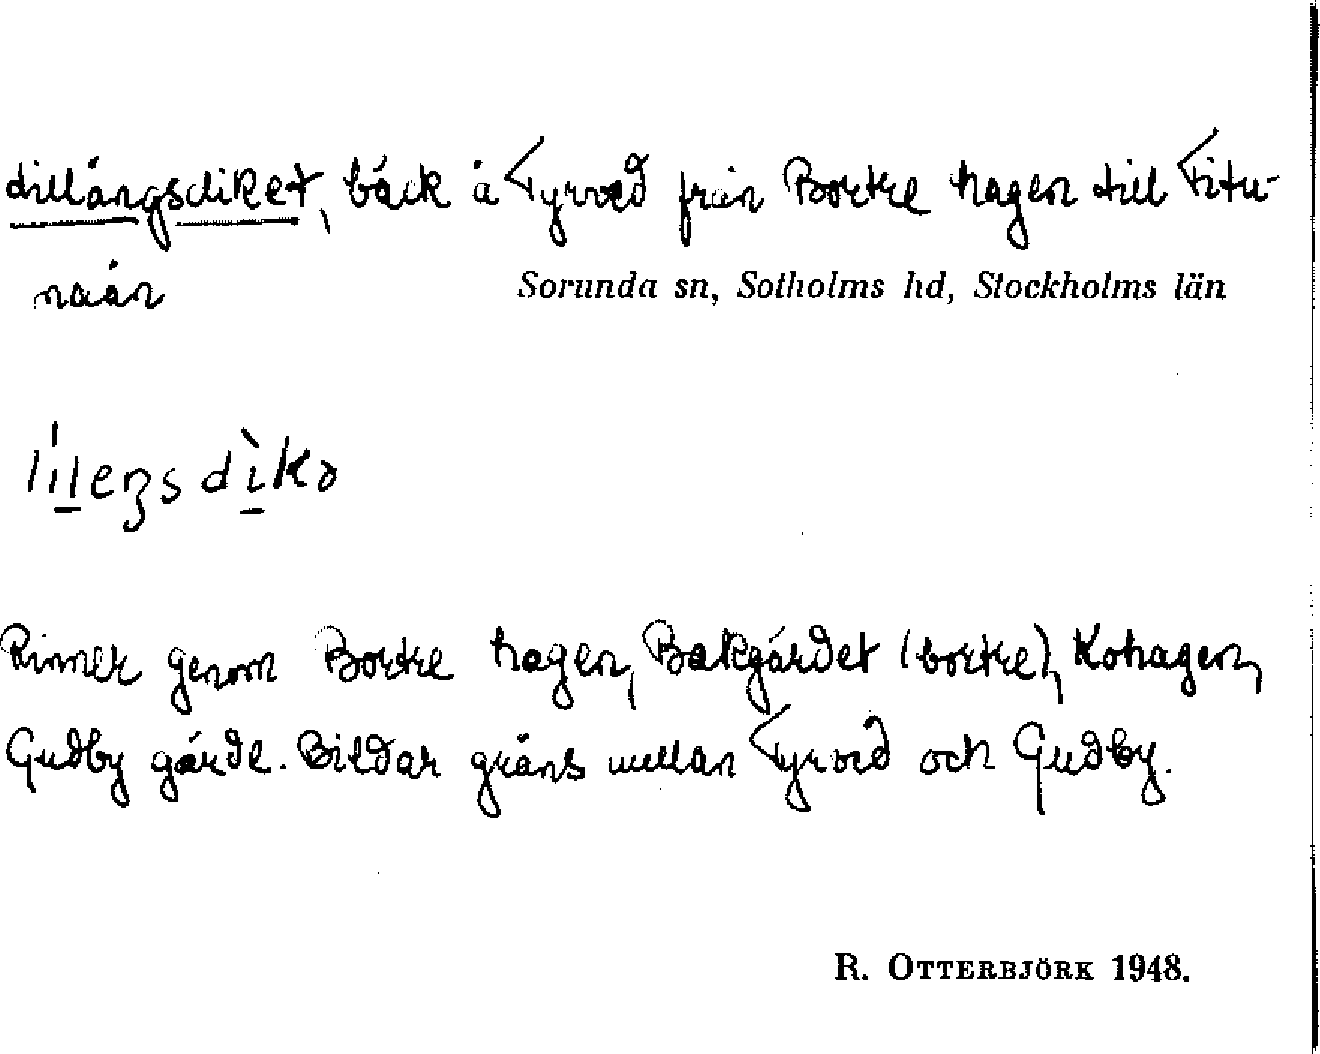 Lillängsdiket, bäck å Fyrved från Bortre hagen till Fitu-
naån
Sorunda sn, Sotholms hd, Stockholms län
lílleŋsdìkə
Rinner genom Bortre hagen, Bakgärdet (bortre), Kohagen,
Gudby gärde. Bildar gräns mellan Fyrved och Gudby.
R. OTTERBJÖRK 1948.